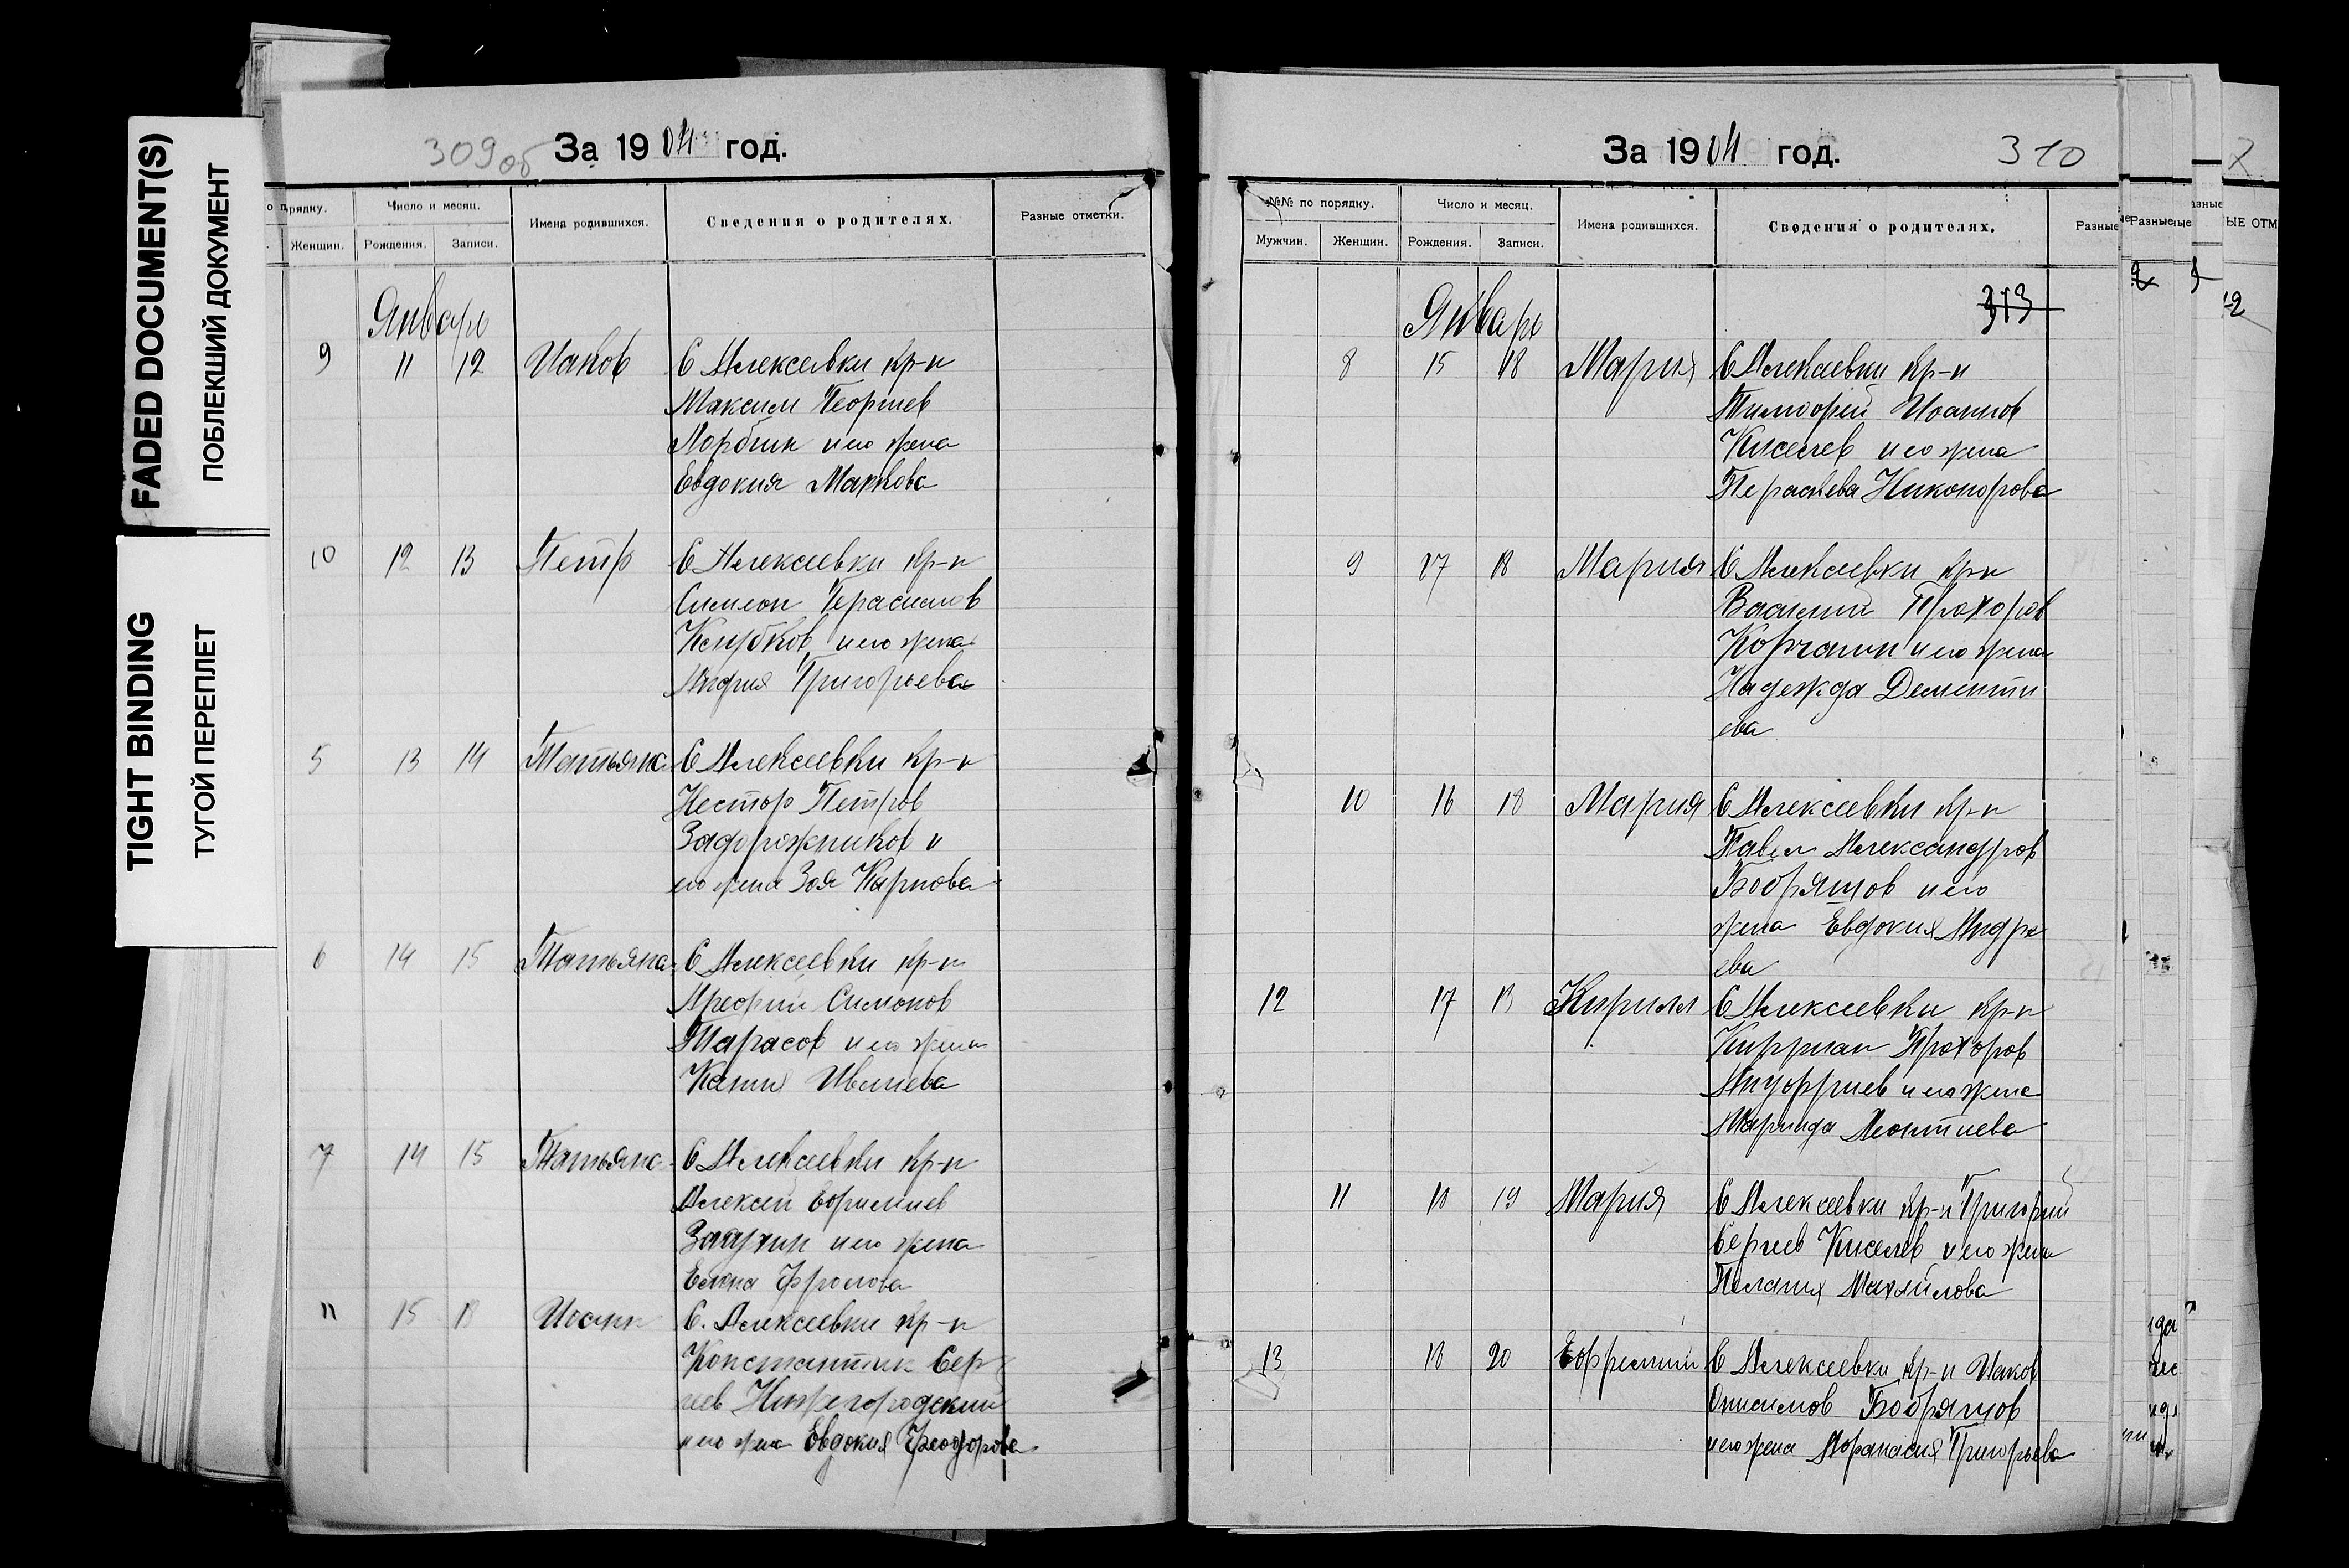 FADED DOCUMENT(S)
ПОБЛЕКШИЙ ДОКУМЕНТ
TIGHT BINDING
ТУГОЙ ПЕРЕПЛЕТ
309об
За 1904 год.
о порядку.
Число и месяц.
Имена родившихся.
Сведения о родителях.
Разные отметки.
Женщин.
Рождения.
Записи.
Январь
9 11 12 Иаков С Алексеевки кр-н
Максим Георгиев
и его жена
Евдокия Маркова
10 12 13 Петр С Алексеевки кр-н
Симеон Герасимов
и его жена
Григорьева
5 13 14 Татьяна С Алексеевки кр-н
Нестор Петров
Задорожников и
его жена Зоя Карпова
6 14 15 Татьяна С Алексеевки кр-н
Симонов
Тарасов и его жена
7 14 15 Татьяна С Алексеевки кр-н
Алексей Евфимиев
и его жена
Елена Фролова
11 15 18 Иоанн С. Алексеевки кр-н
Константин Сер
геев Нижегородский
и его жена Евдокия Феодорова
За 1904 год.
310
№№ по порядку.
Число и месяц.
Имена родившихся.
Сведения о родителях.
Разные
Мужчин.
Женщин.
Рождения.
Записи.
313
Январь
8 15 18 Мария С Алексеевки кр-н
Тимофей Иоаннов
Киселев и его жена
Никонорова
9 17 18 Мария С Алексеевки кр-н
Василий Прохоров
Корчагин и его жена
Надежда Дементи
ева
10 16 18 Мария С Алексеевки кр-н
Павел Александров
Бобряшов и его
жена Евдокия Андре
ева
12 17 18 Кирилл С Алексеевки кр-н
Киприан Прохоров
Ануфриев и его жена
Леонтиева
11 18 19 Мария С Алексеевки кр-н Григорий
Сергиев Киселев и его жена
Пелагия Михайлова
13 18 20 Ефремий С Алексеевки кр-н Иаков
Онисимов Бобряшов
и его жена Афанасия Григорьева